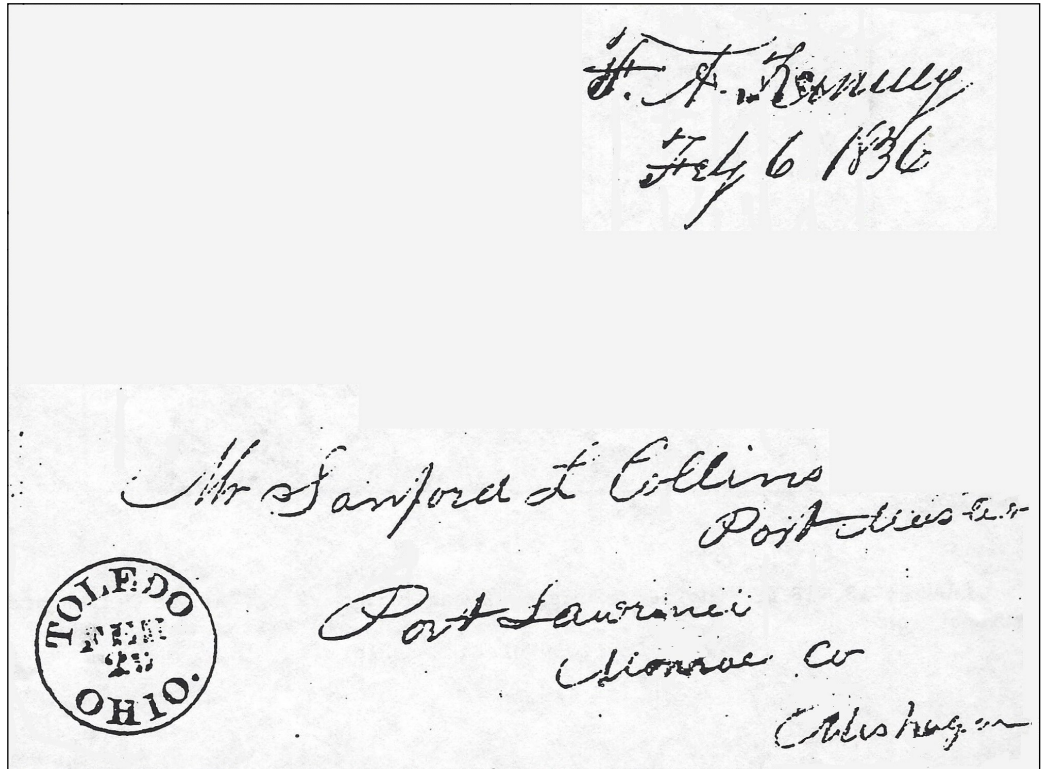 Feby 6 1836
Mr Sanford L Collins
Post Master
Port Lawrence
Monroe Co
Mishagan
TOLEDO
FEB
OHIO.